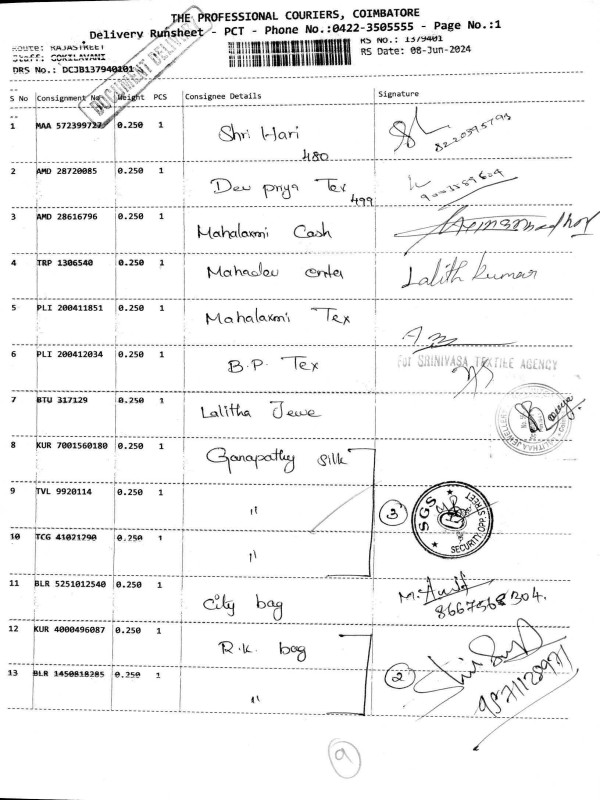 THE PROFESSIONAL COURIERS, COIMBATORE
Delivery Runsheet - PCT - Phone No.:0422-3505555 - Page No.:1
Route: RAJASTREET
RS No.: 1379401
Staff: GOKILAVANI
RS Date: 08-Jun-2024
DRS No.: DCJB137940101
DOCUMENT DELIVERY
S No Consignment No Weight PCS Consignee Details Signature
1 MAA 572399727 0.250 1 Shri Hari 480 8220395793
2 AMD 28720085 0.250 1 Dev priya Tex 499
3 AMD 28616796 0.250 1 Mahalaxmi Cash
4 TRP 1306540 0.250 1 Mahadev enter Lalith kumar
5 PLI 200411851 0.250 1 Mahalaxmi Tex
6 PLI 200412034 0.250 1 B.P. Tex For SRINIVASA TEXTILE AGENCY
7 BTU 317129 0.250 1 Lalitha Jewe
8 KUR 7001560180 0.250 1 Ganapathy silk
9 TVL 9920114 0.250 1 " 3 SGS SECURITY.OPP.STREET
10 TCG 41021290 0.250 1 "
11 BLR 5251012540 0.250 1 City bag 8667568304.
12 KUR 4000496087 0.250 1 R.K. bag
13 BLR 1450818285 0.250 1 " 2
9